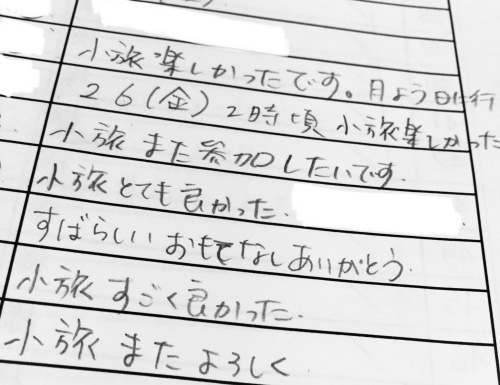 小旅楽しかったです。月よう日は行
26(金) 2時頃 小旅楽しかった
小旅 また参加したいです.
小旅とても良かった.
すばらしい おもてなしありがとう.
小旅 すごく良かった.
小旅 またよろしく